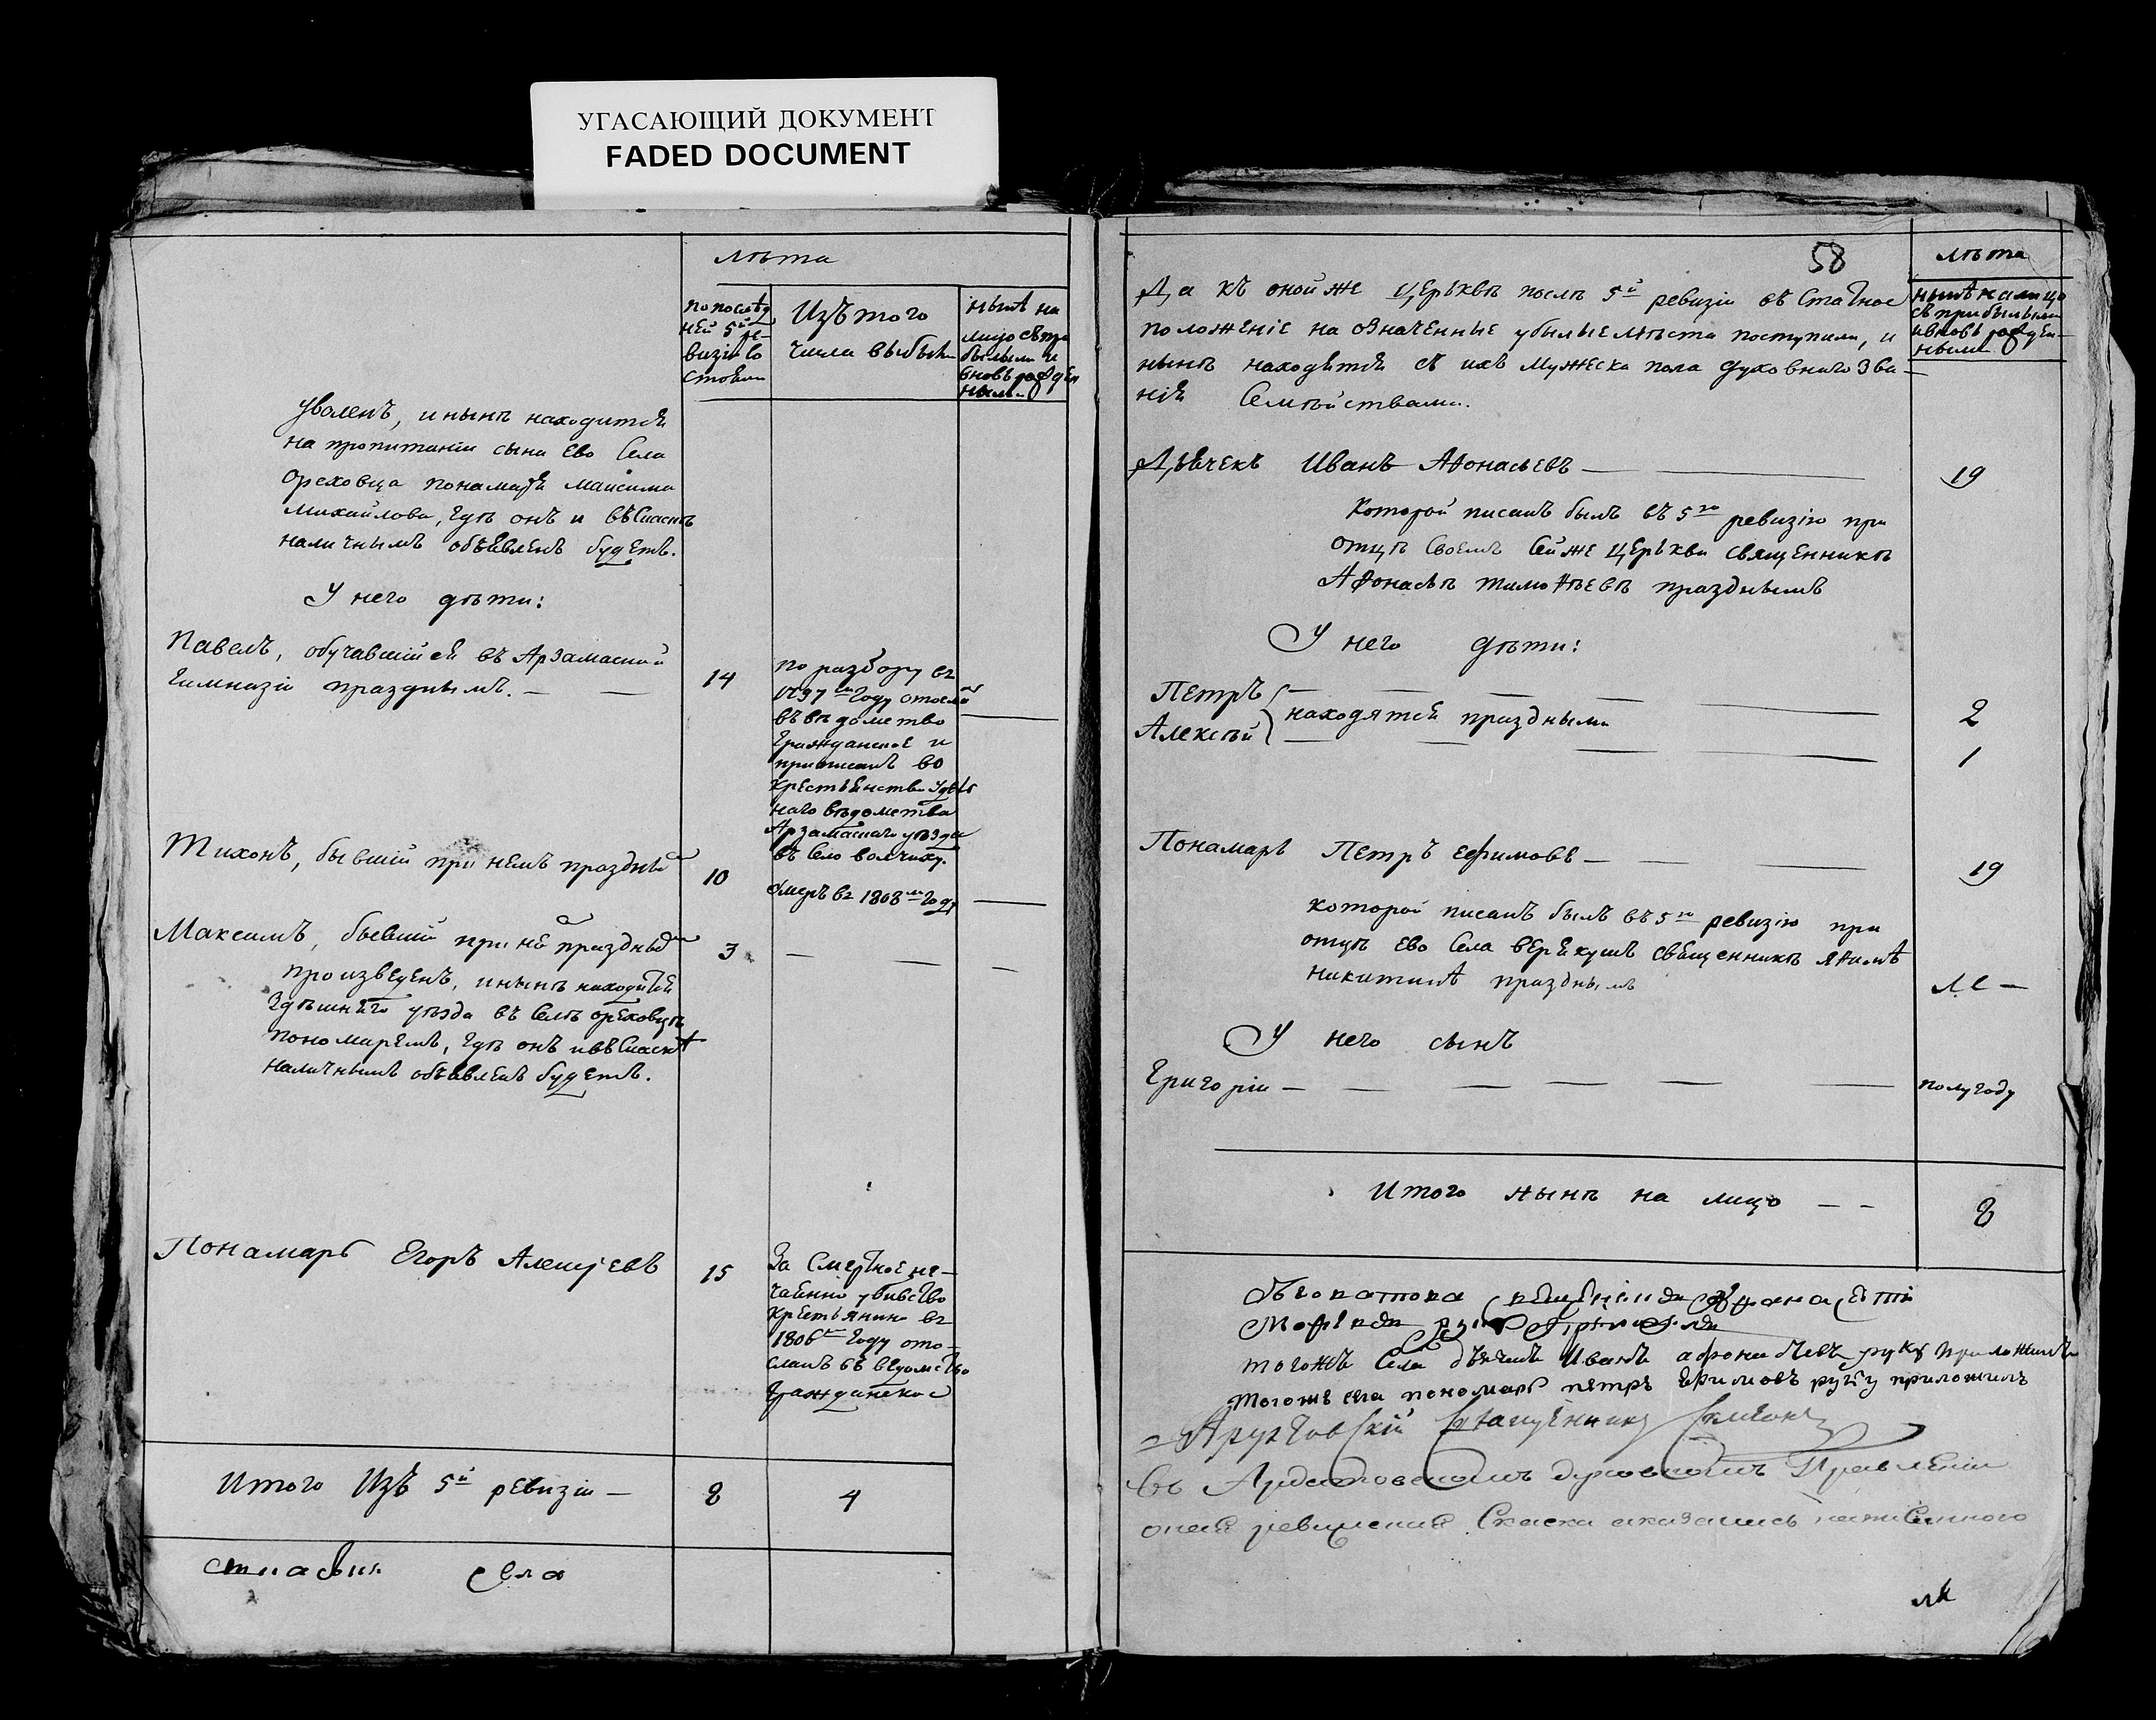 УГАСАЮЩИЙ ДОКУМЕНТ
FADED DOCUMENT
лѣта
по послѣд
ней 5й ре-
визіи со
стояли
Изъ того
числа выбыли
нынѣ на
лицо съ при
былыми и
вновь рожден
ными
уволенъ, и нынѣ находится
на пропитаніи сына ево села
Ореховца понамаря Максима
Михайлова, гдѣ онъ и въ Скаскѣ
наличнымъ объявленъ будетъ.
У него дѣти:
Павелъ, обучавшійся въ Арзамаской
гимназіи празднымъ. — —
14
по разбору въ
1797м году отосланъ
въ вѣдомство
Гражданское и
приписанъ во
крестьянство удѣль
наго вѣдомства
Арзамаскаго уѣзда
въ село волчиху.
Тихонъ, бывшій при немъ празднымъ
10
Умеръ въ 1808м году
Максимъ, бывшій при немъ празднымъ
3
произведенъ, и нынѣ находится
здѣшняго уѣзда въ селѣ ореховцѣ
пономаремъ, гдѣ онъ и въ Скаскѣ
наличнымъ объявленъ будетъ.
Понамарь Егоръ Алексѣевъ
15
За Смертное не-
чаянно убивство
крестьянина въ
1806м году ото-
сланъ въ ведомство
Гражданское
Итого Изъ 5й ревизіи —
8
4
села
58
лѣта
нынѣ на лицо
съ прибылыми
и вновь рожден-
ными
Да къ оной же церьквѣ послѣ 5й ревизіи въ статное
положеніе на означенные убылые мѣста поступили, и
нынѣ находятся съ ихъ мужеска пола духовнаго зва-
нія Семѣйствами.
Дьячекъ Иванъ Афонасьевъ —
19
Которой писанъ былъ въ 5ю ревизію при
отцѣ своемъ сей же церькви священникѣ
Афонасьѣ Тимофѣевѣ празднымъ
У него дѣти:
Петръ
Алексѣй
находятся праздными
2
1
Понамарь Петръ Ефимовъ —
19
которой писанъ былъ въ 5ю ревизію при
отцѣ ево села верякушъ священникѣ
никитинѣ празднымъ
У него сынъ
Григоріи —
полугоду
Итого нынѣ на лицо — —
8
тогожъ Села дьячекъ Иванъ афонасьевъ руку приложилъ
тогожъ села пономарь петръ Ефимовъ руку приложилъ
Священникъ Симеонъ
Въ Ардатовскомъ духовномъ Правленіи
Скаска